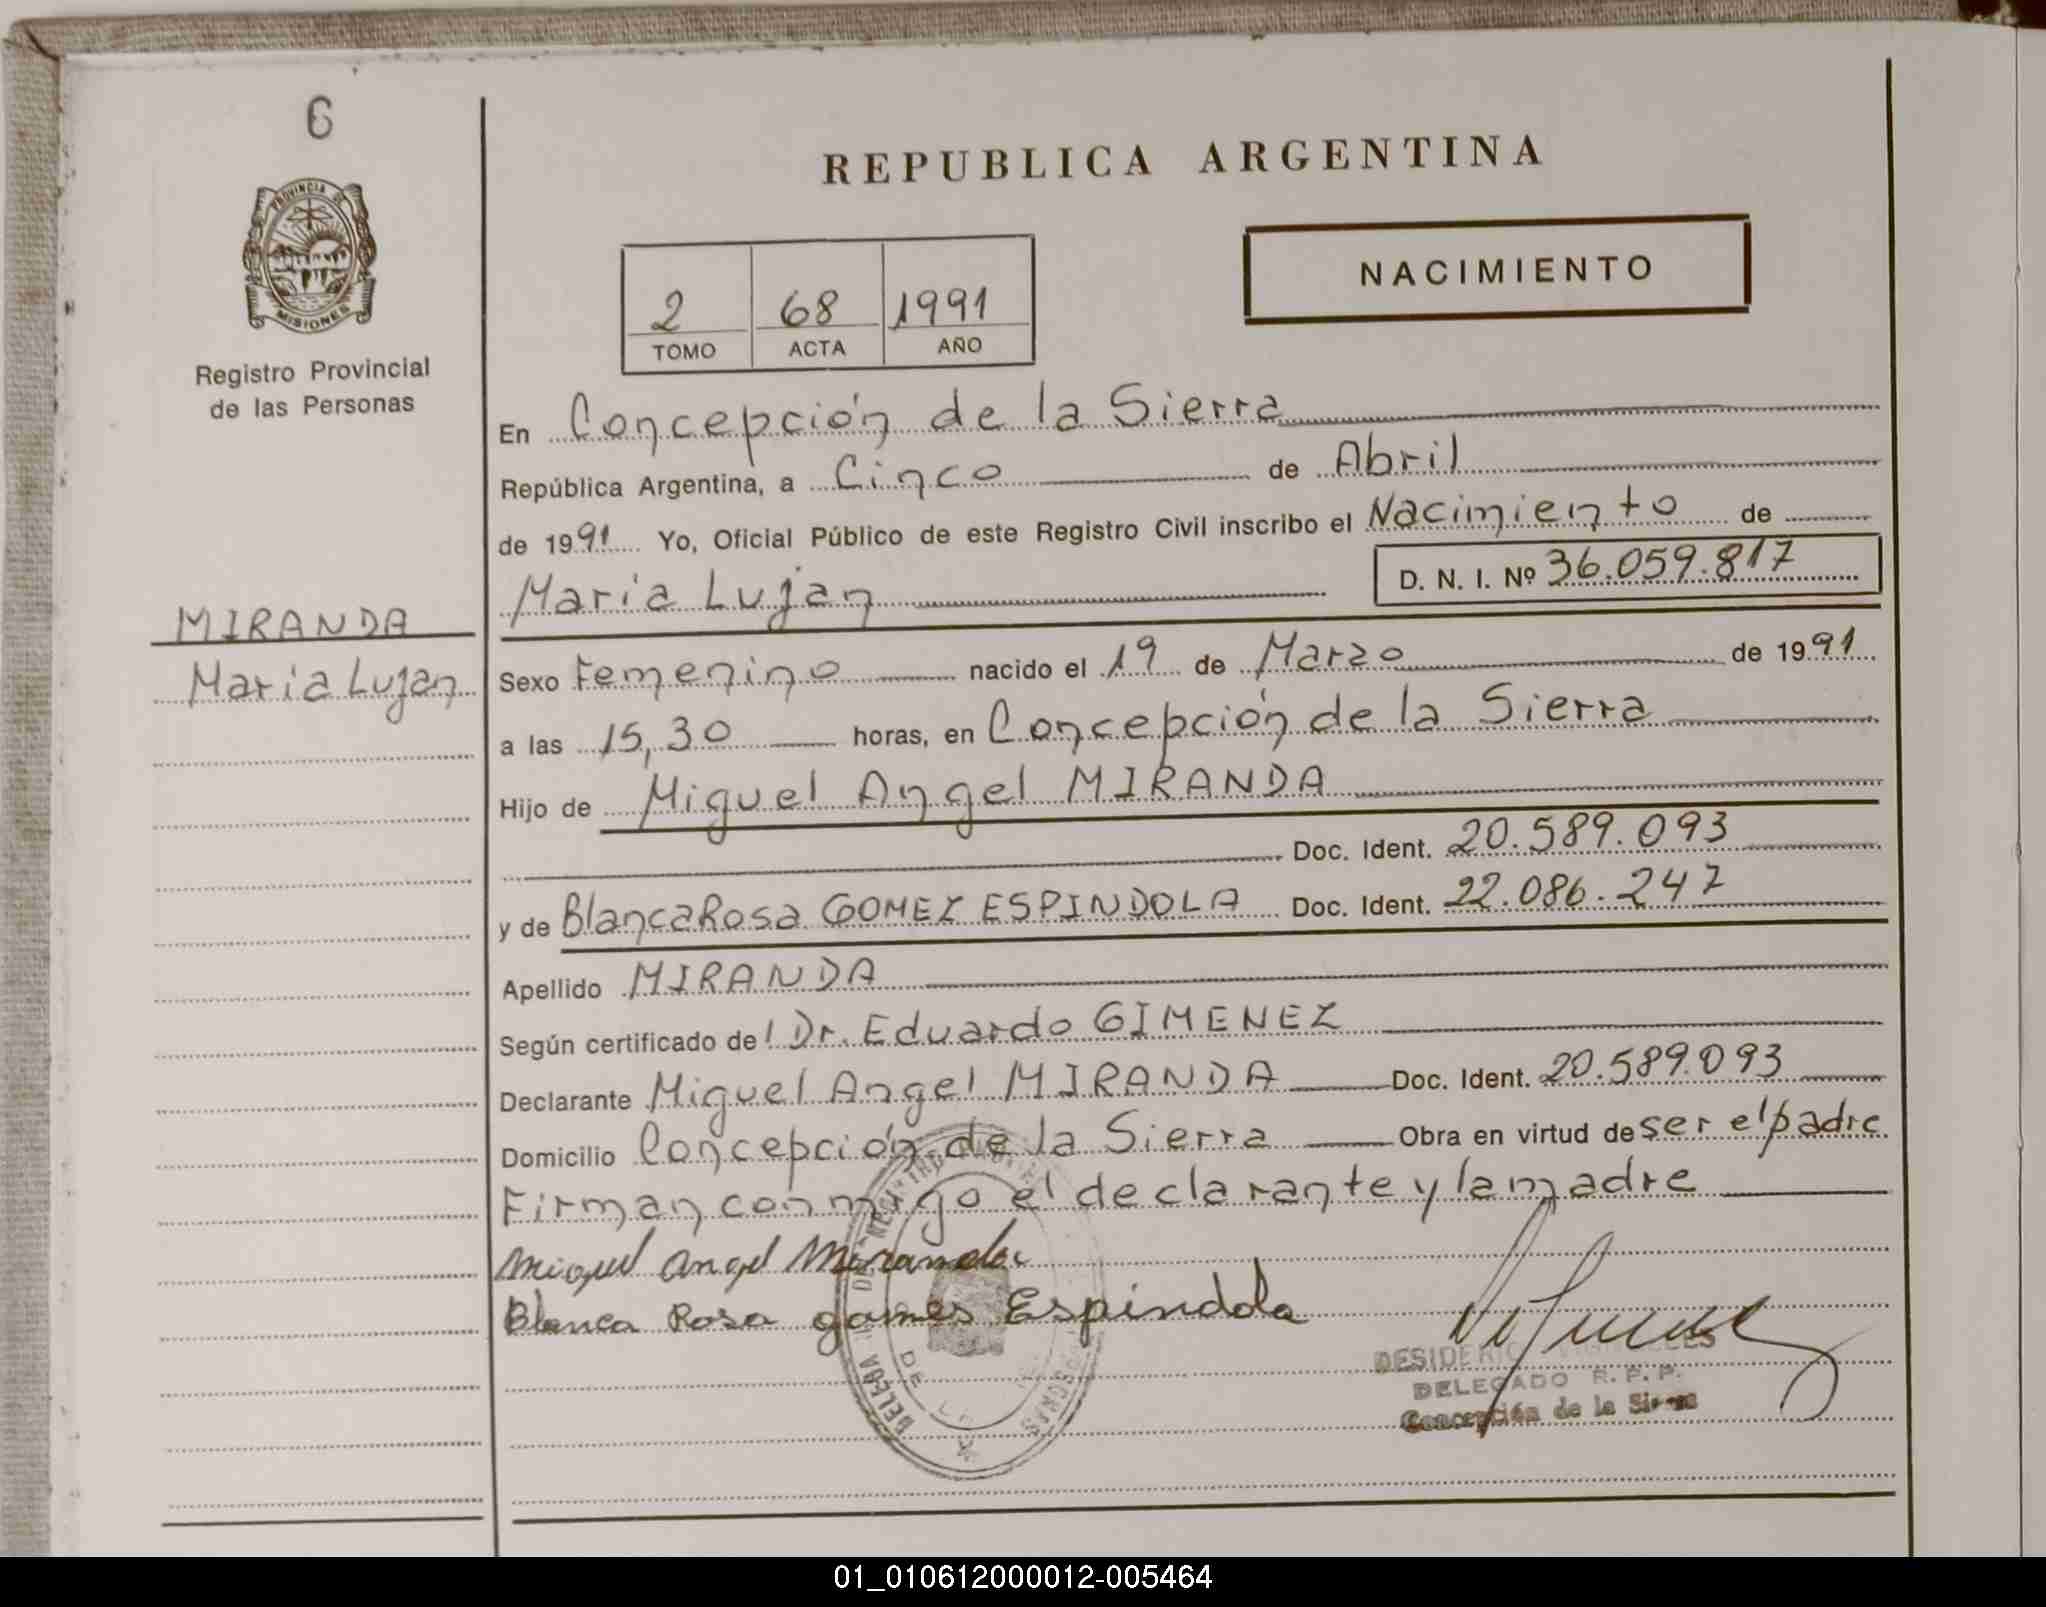 6
PROVINCIA DE
MISIONES
Registro Provincial
de las Personas
MIRANDA
Maria Lujan
REPUBLICA ARGENTINA
2 68 1991
TOMO ACTA AÑO
NACIMIENTO
En Concepción de la Sierra
República Argentina, a Cinco de Abril
de 1991 Yo, Oficial Público de este Registro Civil inscribo el Nacimiento de
Maria Lujan D. N. I. Nº 36.059.817
Sexo Femenino nacido el 19 de Marzo de 1991
a las 15,30 horas, en Concepción de la Sierra
Hijo de Miguel Angel MIRANDA
Doc. Ident. 20.589.093
y de Blanca Rosa GOMEZ ESPINDOLA Doc. Ident. 22.086.247
Apellido MIRANDA
Según certificado del Dr. Eduardo GIMENEZ
Declarante Miguel Angel MIRANDA Doc. Ident. 20.589.093
Domicilio Concepción de la Sierra Obra en virtud de ser el padre
Firman conmigo el declarante y la madre
Miguel Angel Miranda
Blanca Rosa gomes Espindola
DESIDERIO
DELEGADO R. P. P.
Concepción de la Sierra
01_010612000012-005464